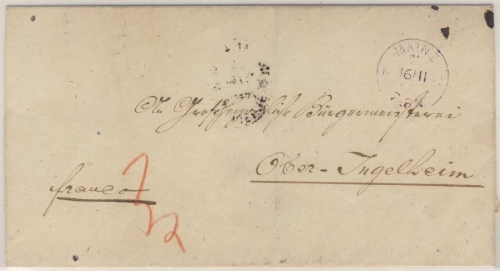 MAINZ
16/11
An Großherzogliche Bürgermeisterei
Ober-Ingelheim
franco